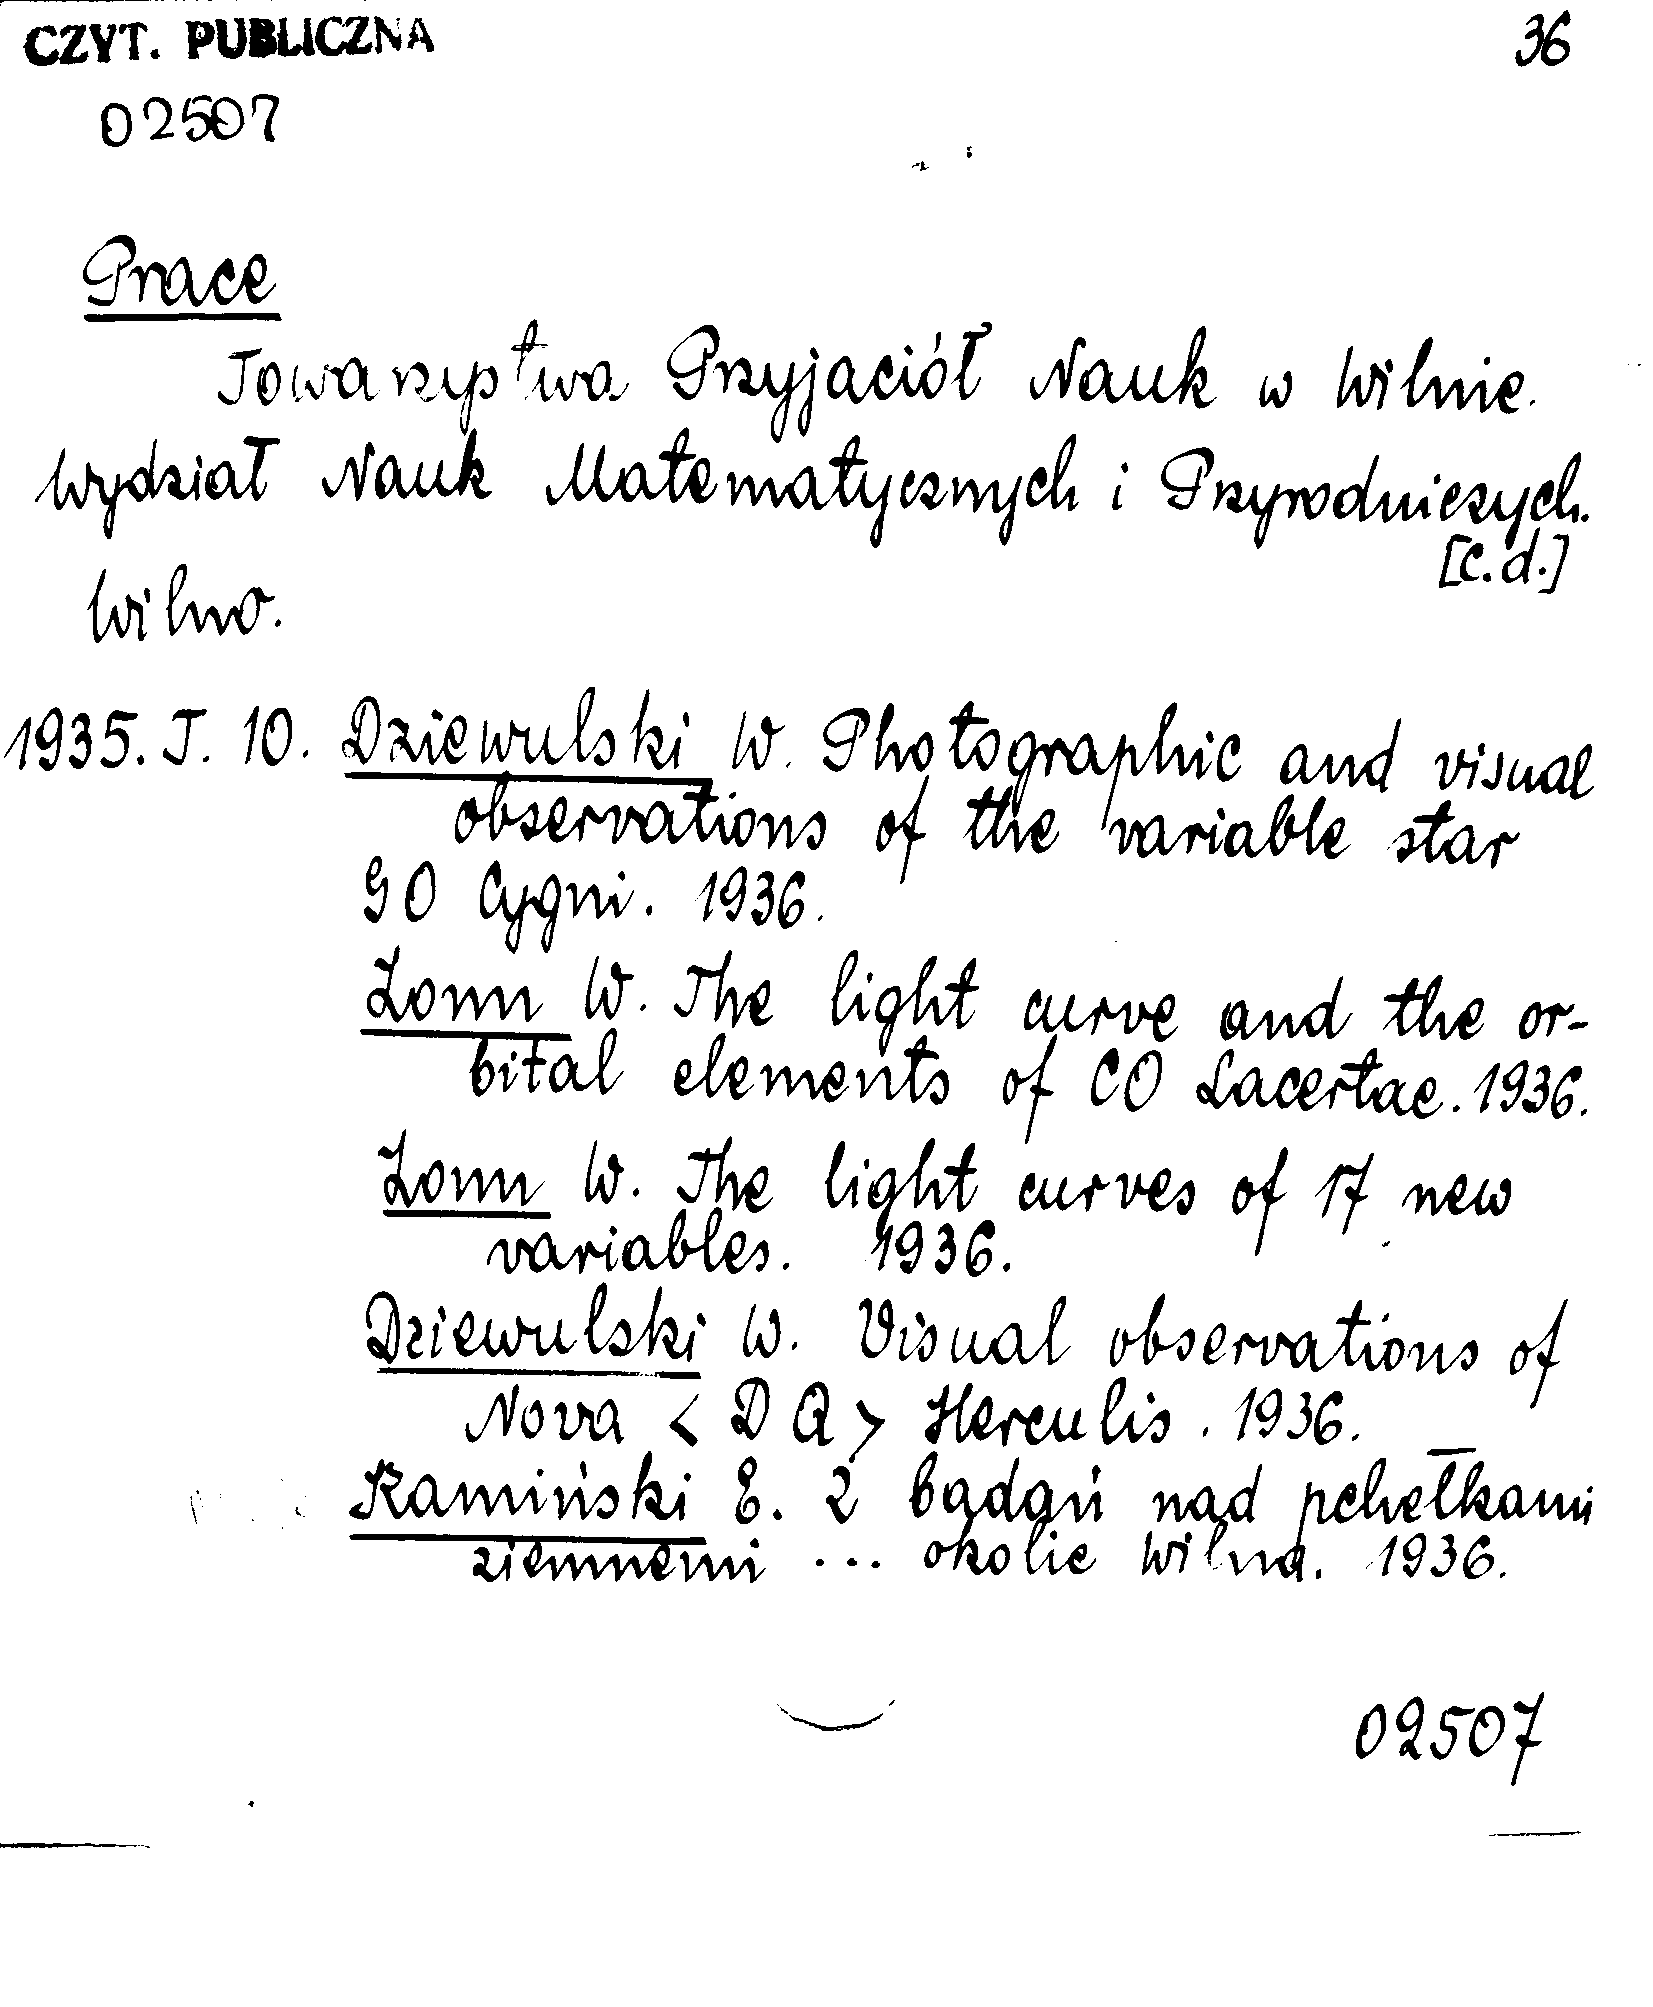 CZYT. PUBLICZNA
36
02507
Prace
Towarzystwa Przyjaciół Nauk w Wilnie.
Wydział Nauk Matematycznych i Przyrodniczych.
[c.d.]
Wilno.
1935. T. 10. Dziewulski W. Photographic and visual
observations of the variable star
GO Cygni. 1936.
Zonn W. The light curve and the or-
bital elements of CO Lacertae. 1936.
Zonn W. The light curves of 17 new
variables. 1936.
Dziewulski W. Visual observations of
Nova < D Q > Herculis. 1936.
Kamiński E. Z badań nad pchełkami
ziemnemi ... okolic Wilna. 1936.
02507